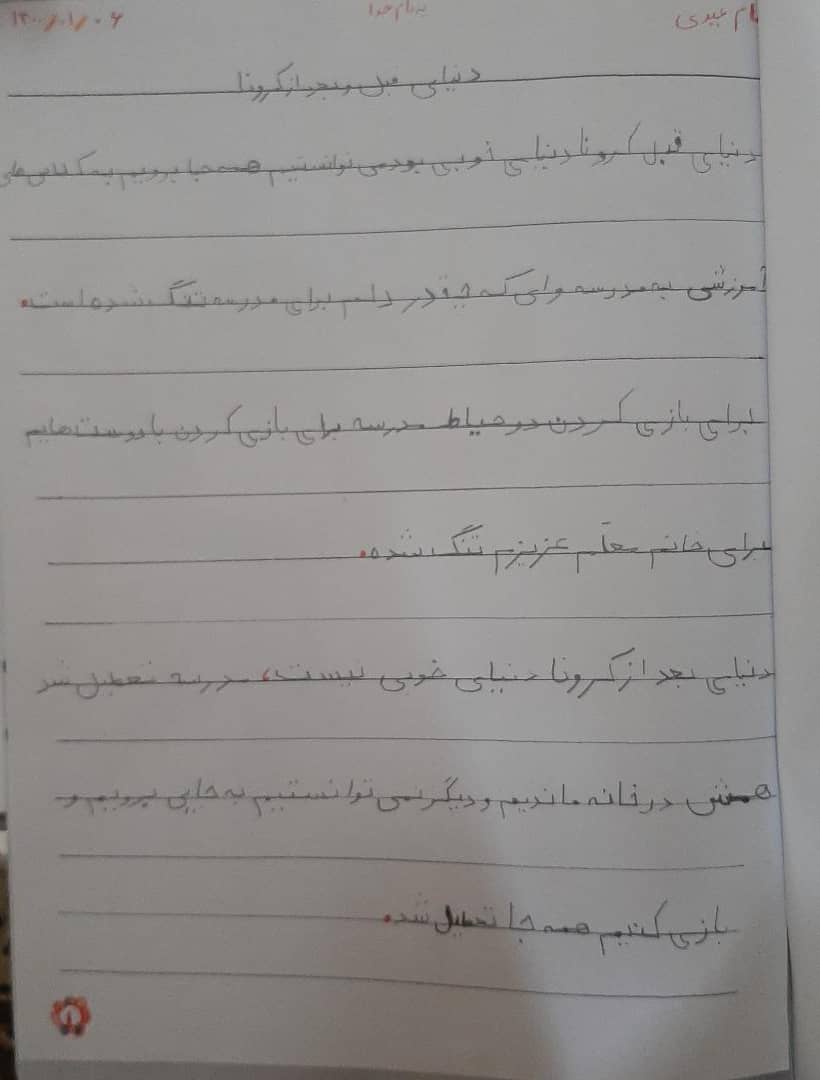 به نام خدا
۱۴۰۰/۰۱/۰۶
دنیایی قبل و بعد از کرونا
دنیای قبل کرونا دنیای خوبی بود می توانستیم همه جا برویم به کلاس های
آموزشی به مدرسه وای که چقدر دلم برای مدرسه تنگ شده است.
برای بازی کردن در حیاط مدرسه برای بازی کردن با دوست هایم
برای خانم معلّم عزیزم تنگ شده.
دنیای بعد از کرونا دنیای خوبی نیست، مدرسه تعطیل شد
همش در خانه ماندیم و دیگر نمی توانستیم به جایی برویم و
بازی کنیم همه جا تعطیل شد.